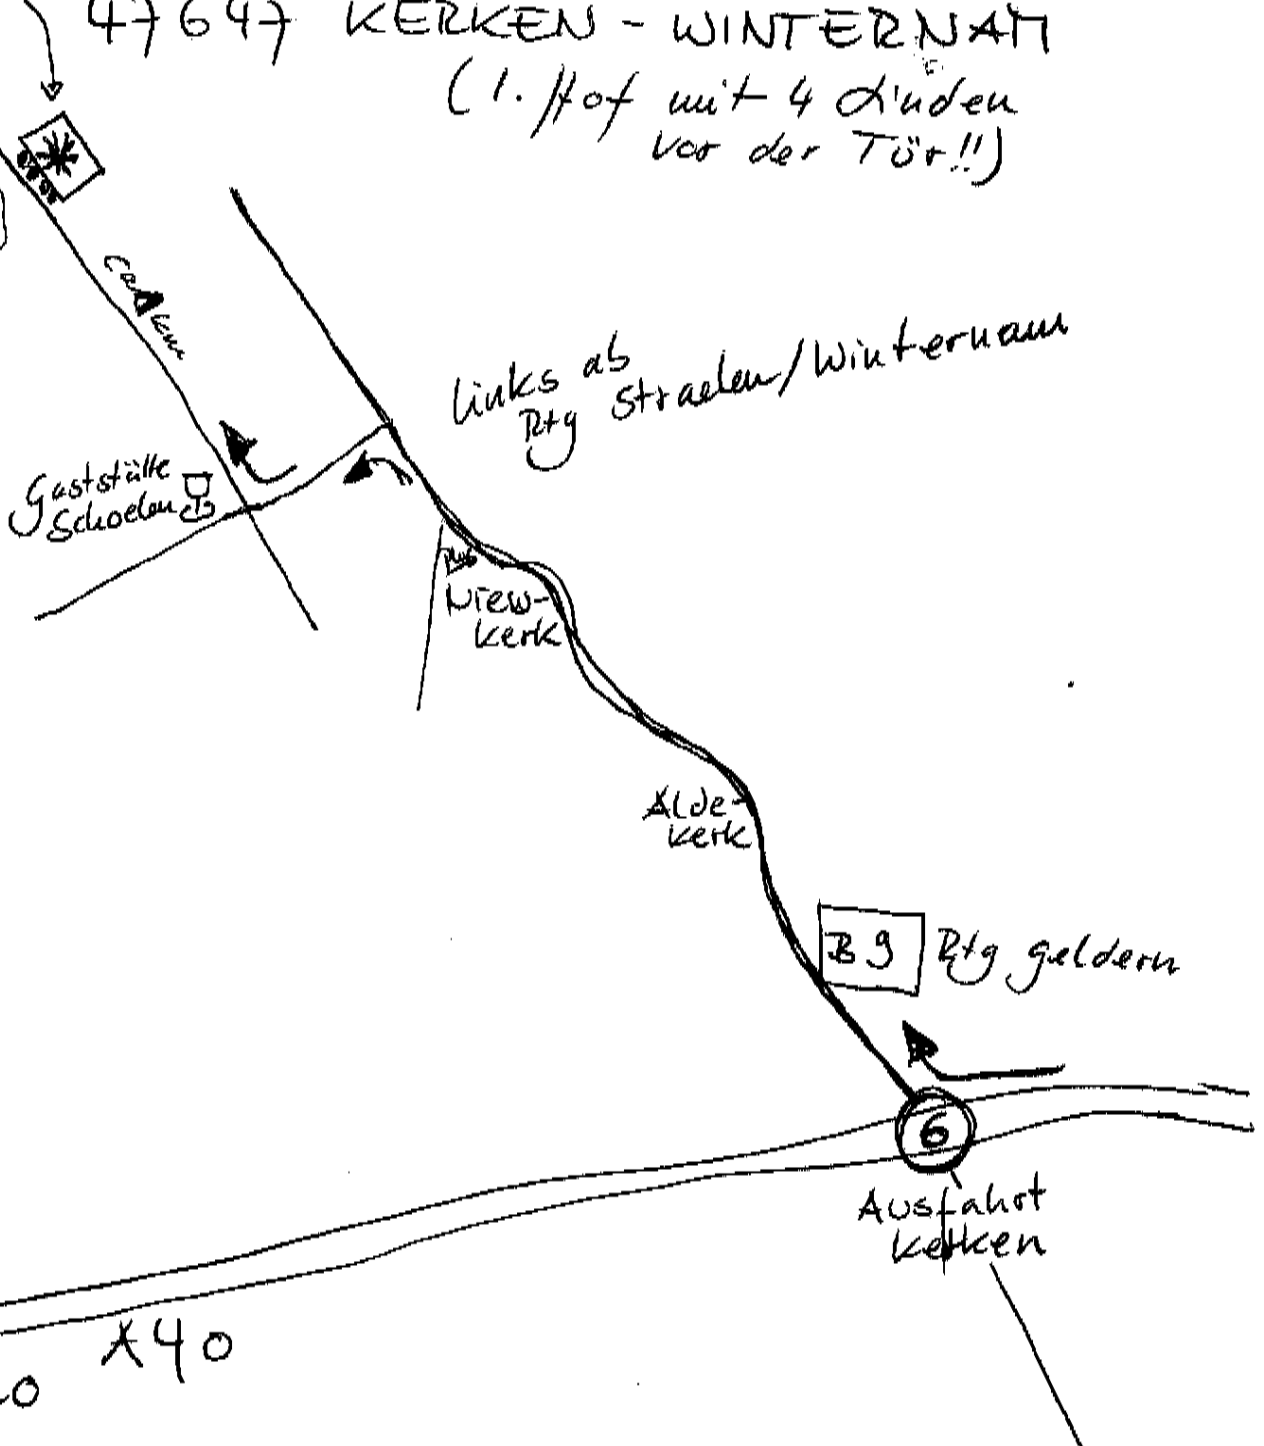 47647 KERKEN - WINTERNAM
(1. Hof mit 4 Linden
vor der Tür!!)
links ab
Rtg Straelen/Winternam
Gaststätte
Schoelen
Niew-
kerk
Alde-
kerk
B9 Rtg geldern
6
Ausfahrt
kerken
A40